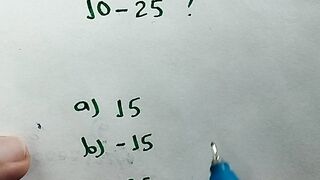 10-25 ?
a) 15
b) -15